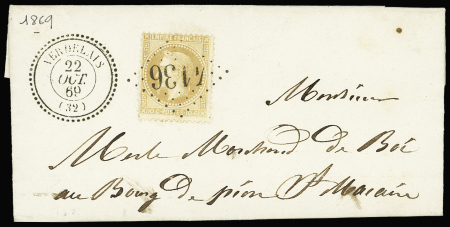 1869
VERDELAIS
22
OCT
69
(32)
EMPIRE FRANÇAIS
4136
Monsieur
Merle Marchand de Boé
au Bourg de pian St Macaire